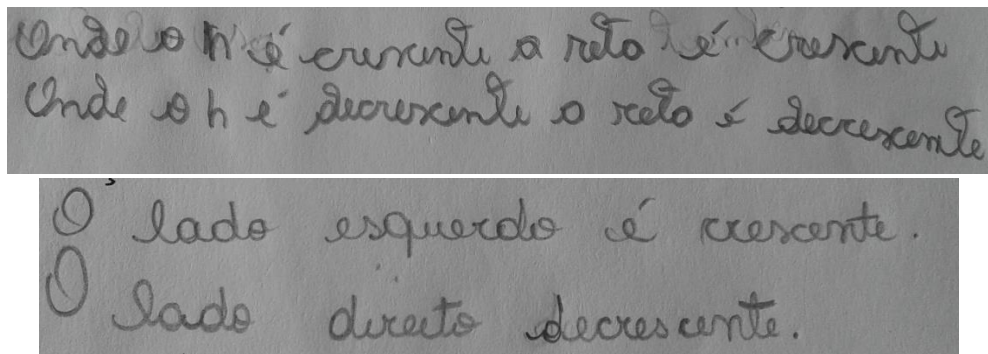 Onde o h é crescente a reta é crescente
Onde o h é decrescente a reta é decrescente
O lado esquerdo é crescente.
O lado direito decrescente.